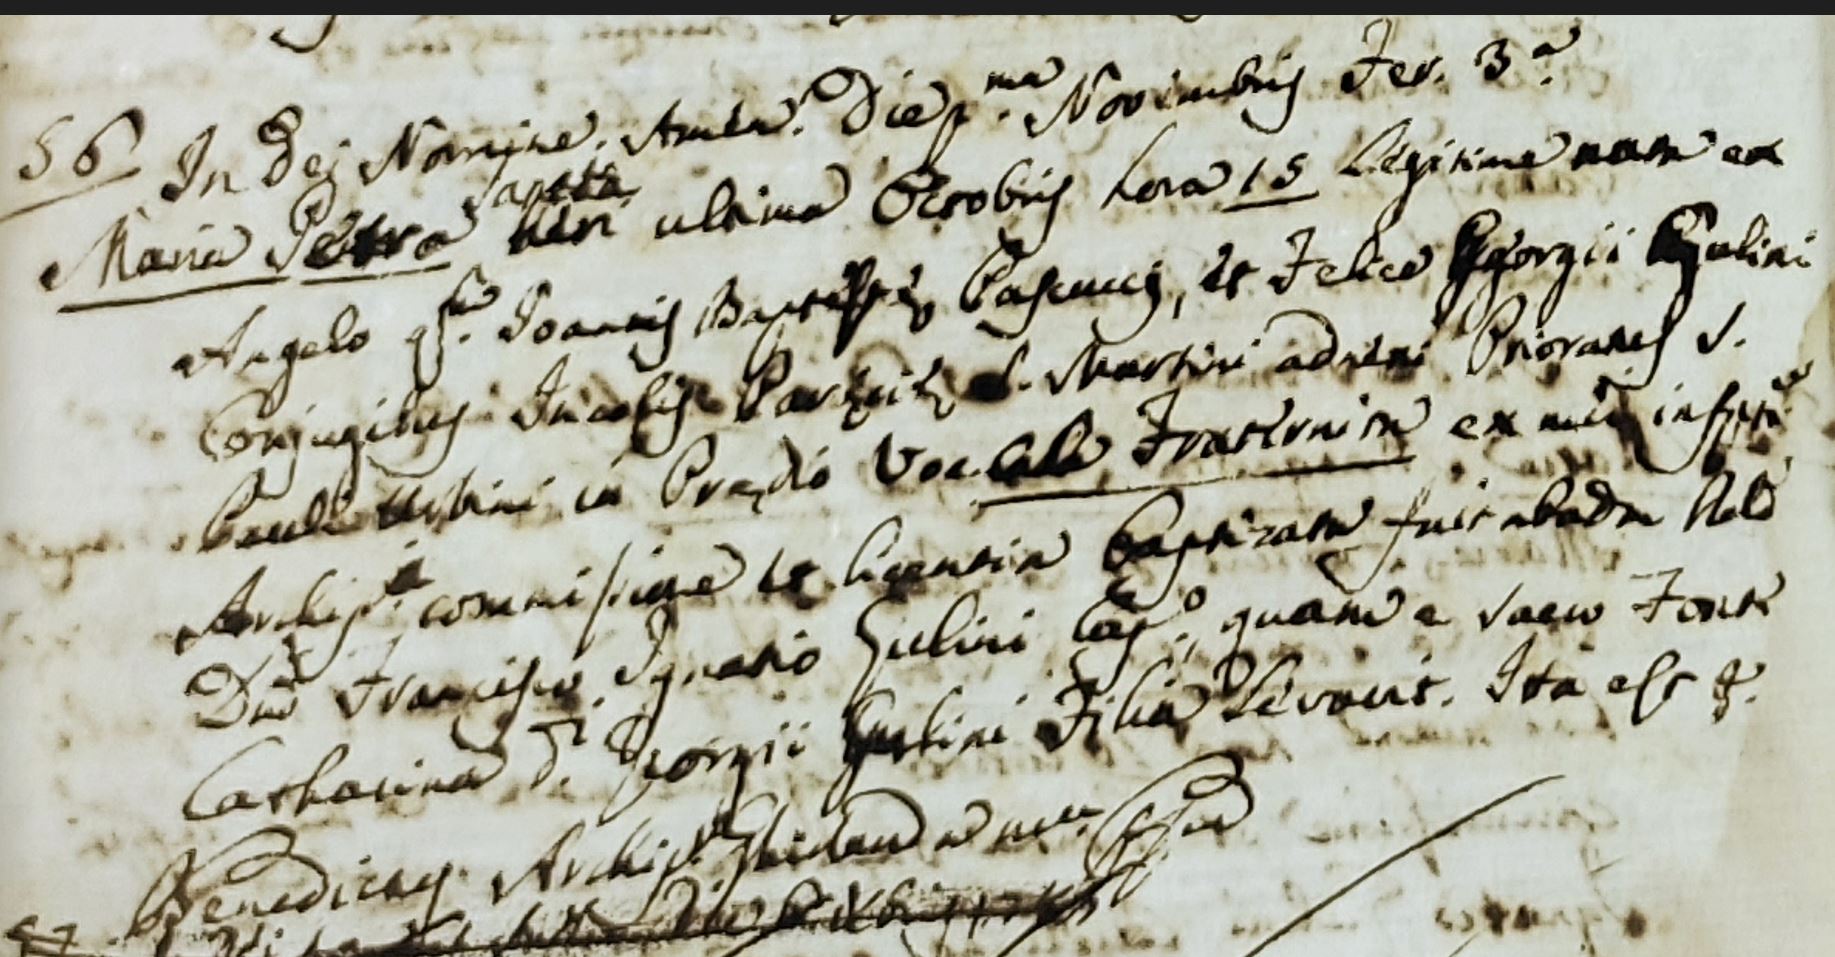 56 In Dei Nomine. Amen. Die p.ma Novembris Fer. 3.a
Maria Petra Santa heri ultima Octobris hora 15 Legitime nata ex
Angelo q. Joannis Baptistę Pascucci, et Felice Georgii Gulini
Conjugibus Incolis Paręcię S. Martini Prioratus S.
Pauli Urbini in Prędio Voc. Fraternita ex infrtti
Archip. commissione et licentia baptizata fuit Rdo
Dno Francisco Ignatio Gulini Cap.o, quam e sacro Fonte
Catharina d.i Georgii Gulini Filia levavit. Ita est
Benedictus Archip.
57